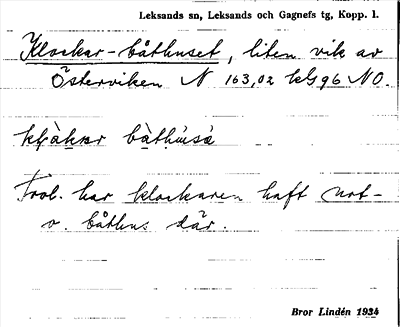 Leksands sn, Leksands och Gagnefs tg, Kopp. l.
Klockar-båthuset, liten vik av
Österviken N 163,02 kG 96 NO.
båthúsa
Trol. har klockaren haft not-
o. båthus där.
Bror Lindén 1934